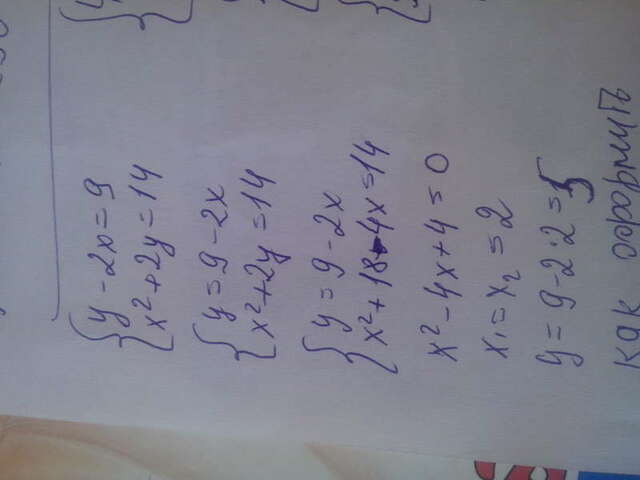 { y - 2x = 9
x² + 2y = 14
{ y = 9 - 2x
x² + 2y = 14
{ y = 9 - 2x
x² + 18 - 4x = 14
x² - 4x + 4 = 0
x₁ = x₂ = 2
y = 9 - 2 · 2 = 5
как оформить